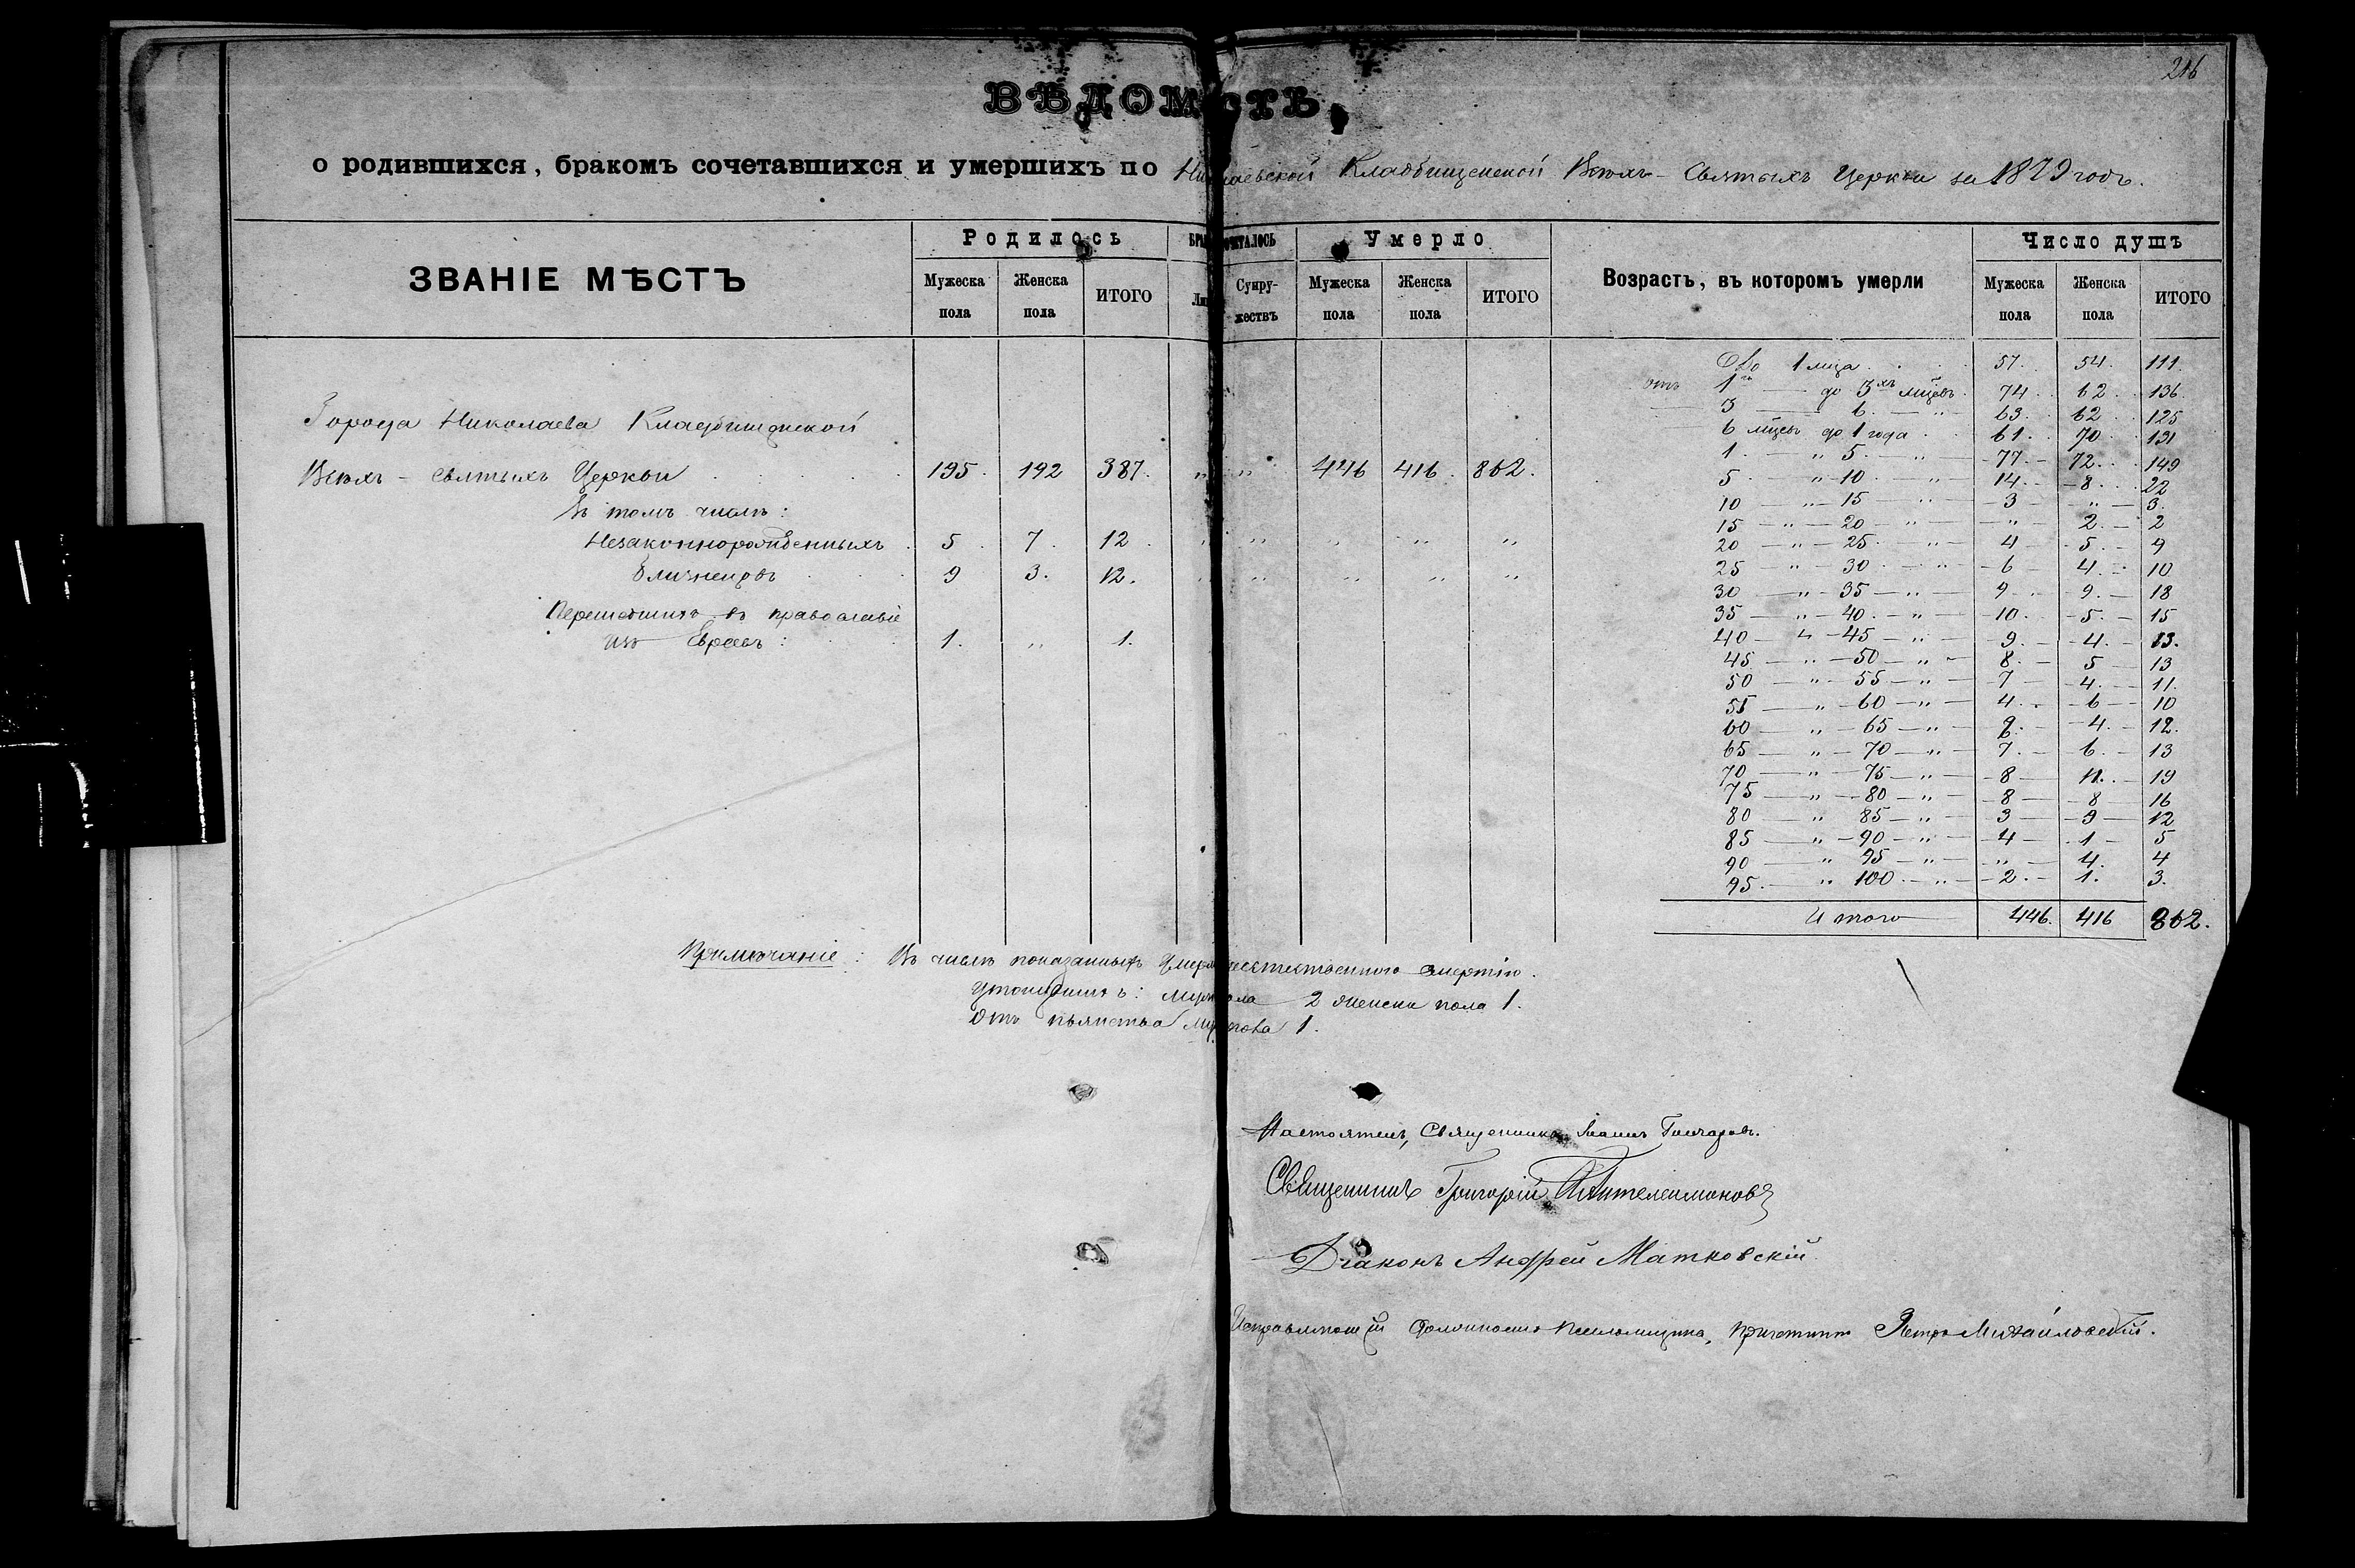 216
ВѢДОМОСТЬ,
о родившихся, бракомъ сочетавшихся и умершихъ по Николаевской Кладбищенской Всѣхъ-Святыхъ Церкви за 1879 годъ.
ЗВАНІЕ МѢСТЪ
Родилось
Умерло
Возрастъ, въ которомъ умерли
Число душъ
Мужеска пола Женска пола ИТОГО
Супружествъ
Мужеска пола Женска пола ИТОГО
Мужеска пола Женска пола ИТОГО
Города Николаева Кладбищенской
Всѣхъ-Святыхъ Церкви 195. 192 387. „ „ 446 416. 862.
Въ томъ числѣ:
Незаконнорожденныхъ 5. 7. 12. „ „ „ „ „
Близнецовъ 9 3. 12. „ „ „ „ „
Перешедшихъ въ православіе
изъ Евреевъ: 1. „ 1.
До 1 мца 57. 54. 111.
отъ 1го — до 3хъ мцевъ 74. 62. 136.
3 — 6 — „ 63. 62 125
6 мцевъ до 1 года 61. 70 131
1. — „ 5. — „ 77. 72. 149
5 — „ 10 — „ 14. 8. 22
10 — „ 15 — „ 3 — „ — 3.
15 — „ 20 — „ — „ — 2. — 2
20 — „ 25 — „ 4 — 5. — 9
25 — „ 30 — „ 6 — 4. — 10
30 — „ 35 — „ 9 — 9. — 18
35 — „ 40 — „ 10. — 5. — 15
40 — „ 45 — „ 9. — 4. — 13.
45 — „ 50 — „ 8. — 5 — 13
50 — „ 55 — „ 7 — 4. — 11.
55 — „ 60 — „ 4. — 6 — 10
60 — „ 65 — „ 8. — 4. — 12.
65 — „ 70 — „ 7. — 6. — 13
70 — „ 75 — „ 8 — 11. — 19
75 — „ 80 — „ 8 — 8 — 16
80 — „ 85 — „ 3 — 9 — 12
85 — „ 90 — „ 4 — 1 — 5
90 — „ 95 — „ — „ — 4. 4
95. — „ 100 — „ 2. — 1. 3.
Итого 446. 416 862.
Примѣчаніе: Въ числѣ показанныхъ смертію.
2 женска пола 1.
Отъ пьянства 1.
Настоятель, Священникъ Іоаннъ Гончаровъ.
Священникъ Григорій Пантелеимоновъ
Діаконъ Андрей Матковскій
Исправляющій должность псаломщика, причетникъ Петръ Михайловскій.